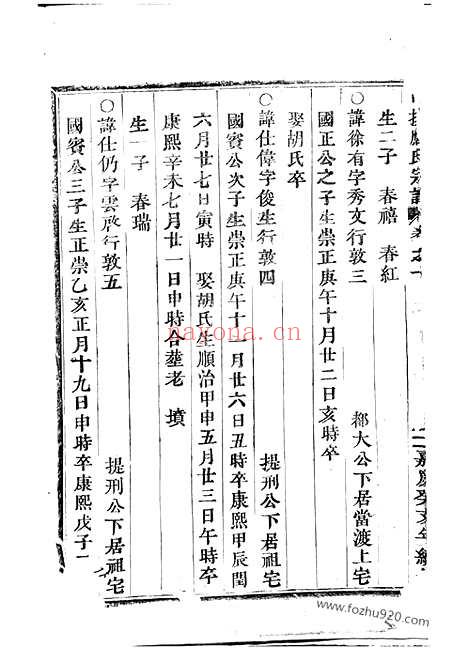 氏宗譜
生二子 春禧 春紅
○諱徐有字秀文行敦三 鄰大公下居當渡上宅
國正公之子生崇正庚午十月廿二日亥時卒
娶胡氏卒
○諱仕偉字俊生行敦四 提刑公下居祖宅
國賓公次子生崇正庚午十二月廿六日丑時卒康熙甲辰閏
六月廿七日寅時 娶胡氏生順治甲申五月廿三日午時卒
康熙辛未七月廿一日申時合塟老墳
生一子 春瑞
○諱仕仍字雲啟行敦五 提刑公下居祖宅
國賓公三子生正崇乙亥正月十九日申時卒康熙戊子二
嘉慶癸亥年
nayona.cn
www.fozhu920.com